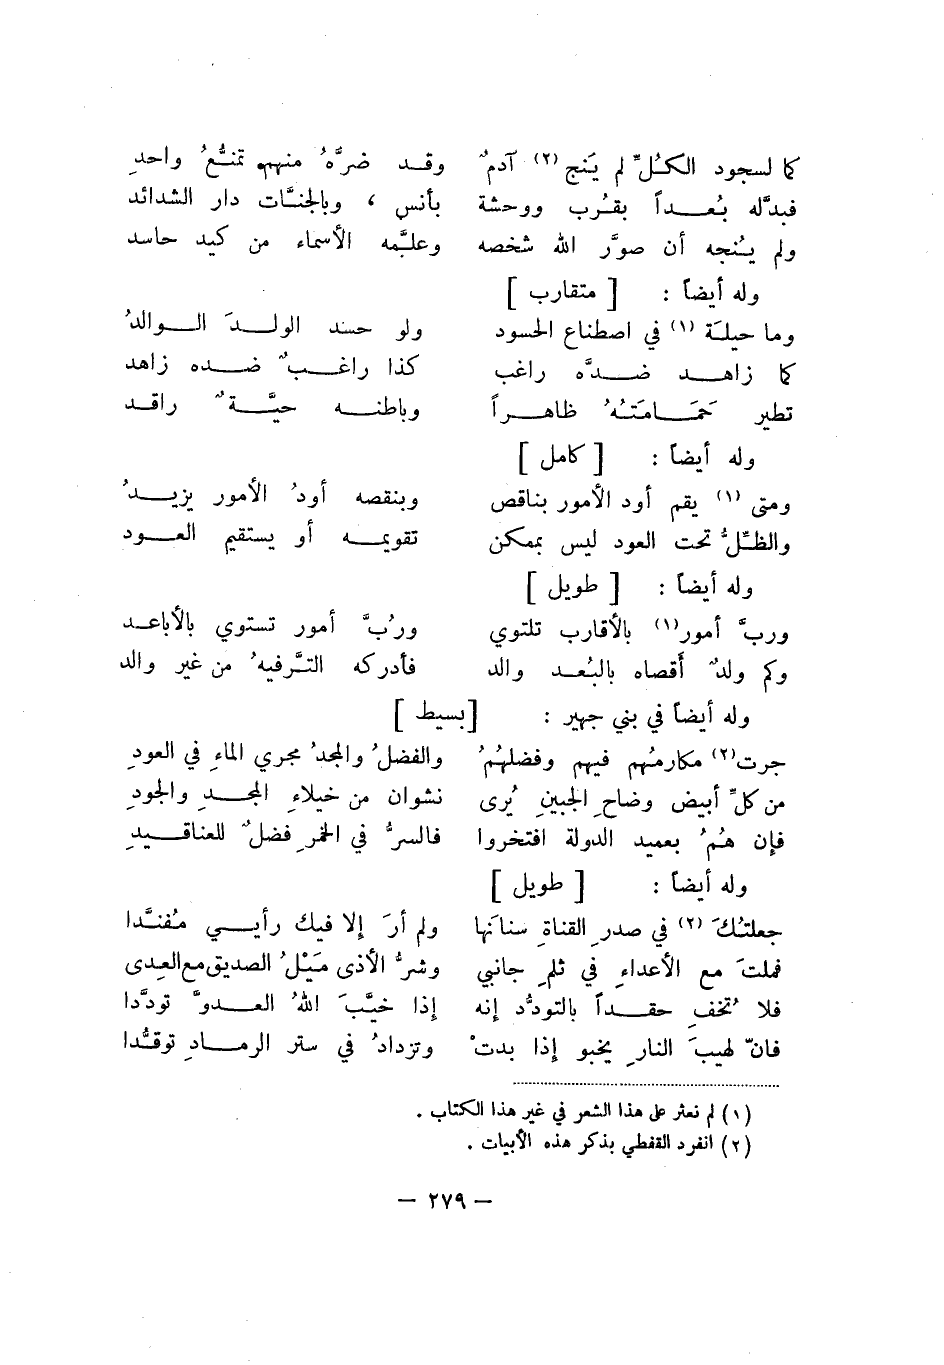 كما لسجود الكلِّ لم يَنج (٢) آدمٌ وقد ضرَّهُ منهم تمنّعُ واحدِ
فبدَّله بُعداً بقُرب ووحشة بأنس ، وبالجنَّات دار الشدائد
ولم يُنجه أن صوَّر الله شخصه وعلَّمه الأسماء من كيد حاسد
وله أيضاً : [ متقارب ]
وما حيلَة (١) في اصطناع الحسود ولو حسد الولدَ الوالدُ
كما زاهد ضدَّه راغب كذا راغبٌ ضده زاهد
تطير حَمَامَتُهُ ظاهراً وباطنه حيَّةٌ راقد
وله أيضاً : [ كامل ]
ومتى (١) يقم أود الأمور بناقص وبنقصه أودُ الأمور يزيدُ
والظّلُّ تحت العود ليس بممكن تقويمه أو يستقيم العود
وله أيضاً : [ طويل ]
وربَّ أمور(١) بالأقارب تلتوي ورُبَّ أمور تستوي بالأباعد
وكم ولدٌ أقصاه بالبُعد والد فأدركه التَّرفيهُ من غير والد
وله أيضاً في بني جهير : [بسيط ]
جرت(٢) مكارمُهم فيهم وفضلهُمُ والفضلُ والمجدُ مجري الماءِ في العودِ
من كلِّ أبيض وضاحِ الجبينِ يُرى نشوان من خيلاءِ المجدِ والجودِ
فإن هُمُ بعميد الدولة افتخروا فالسرُّ في الخمرِ فضلٌ للعناقيدِ
وله أيضاً : [ طويل ]
جعلتُكَ (٢) في صدرِ القناةِ سنانَها ولم أرَ إلا فيك رأيي مفنَّدا
فملتَ مع الأعداءِ في ثلمِ جانبي وشرُّ الأذى مَيْلُ الصديق مع العِدى
فلا تُخفِ حقداً بالتودُّد إنه إذا خيَّبَ اللهُ العدوَّ تودَّدا
فانّ لهيبَ النارِ يخبو إذا بدتْ وتزدادُ في ستر الرمادِ توقُّدا
(١) لم نعثر على هذا الشعر في غير هذا الكتاب .
(٢) انفرد القفطي بذكر هذه الأبيات .
— ٢٧٩ —